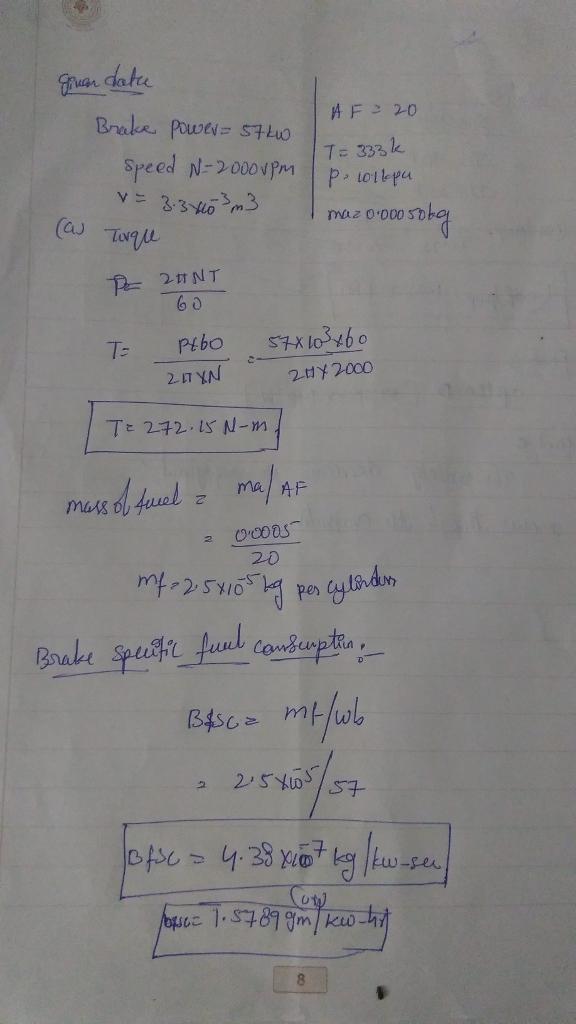 given data
Brake power = 57kw
Speed N = 2000 rpm
V = 3.3x10^-3 m3
AF = 20
T = 333k
P = 101kpa
ma = 0.00050kg
(a) Torque
P = 2πNT/60
T = Px60/2πxN = 57x10^3x60/2πx2000
T = 272.15 N-m
mass of fuel = ma/AF
= 0.0005/20
mf = 2.5x10^-5 kg per cylinder
Brake specific fuel consumption:-
Bfsc = mf/wb
= 2.5x10^-5/57
Bfsc = 4.38x10^-7 kg/kw-sec
(or)
bfsc = 1.5789 gm/kw-hr
8